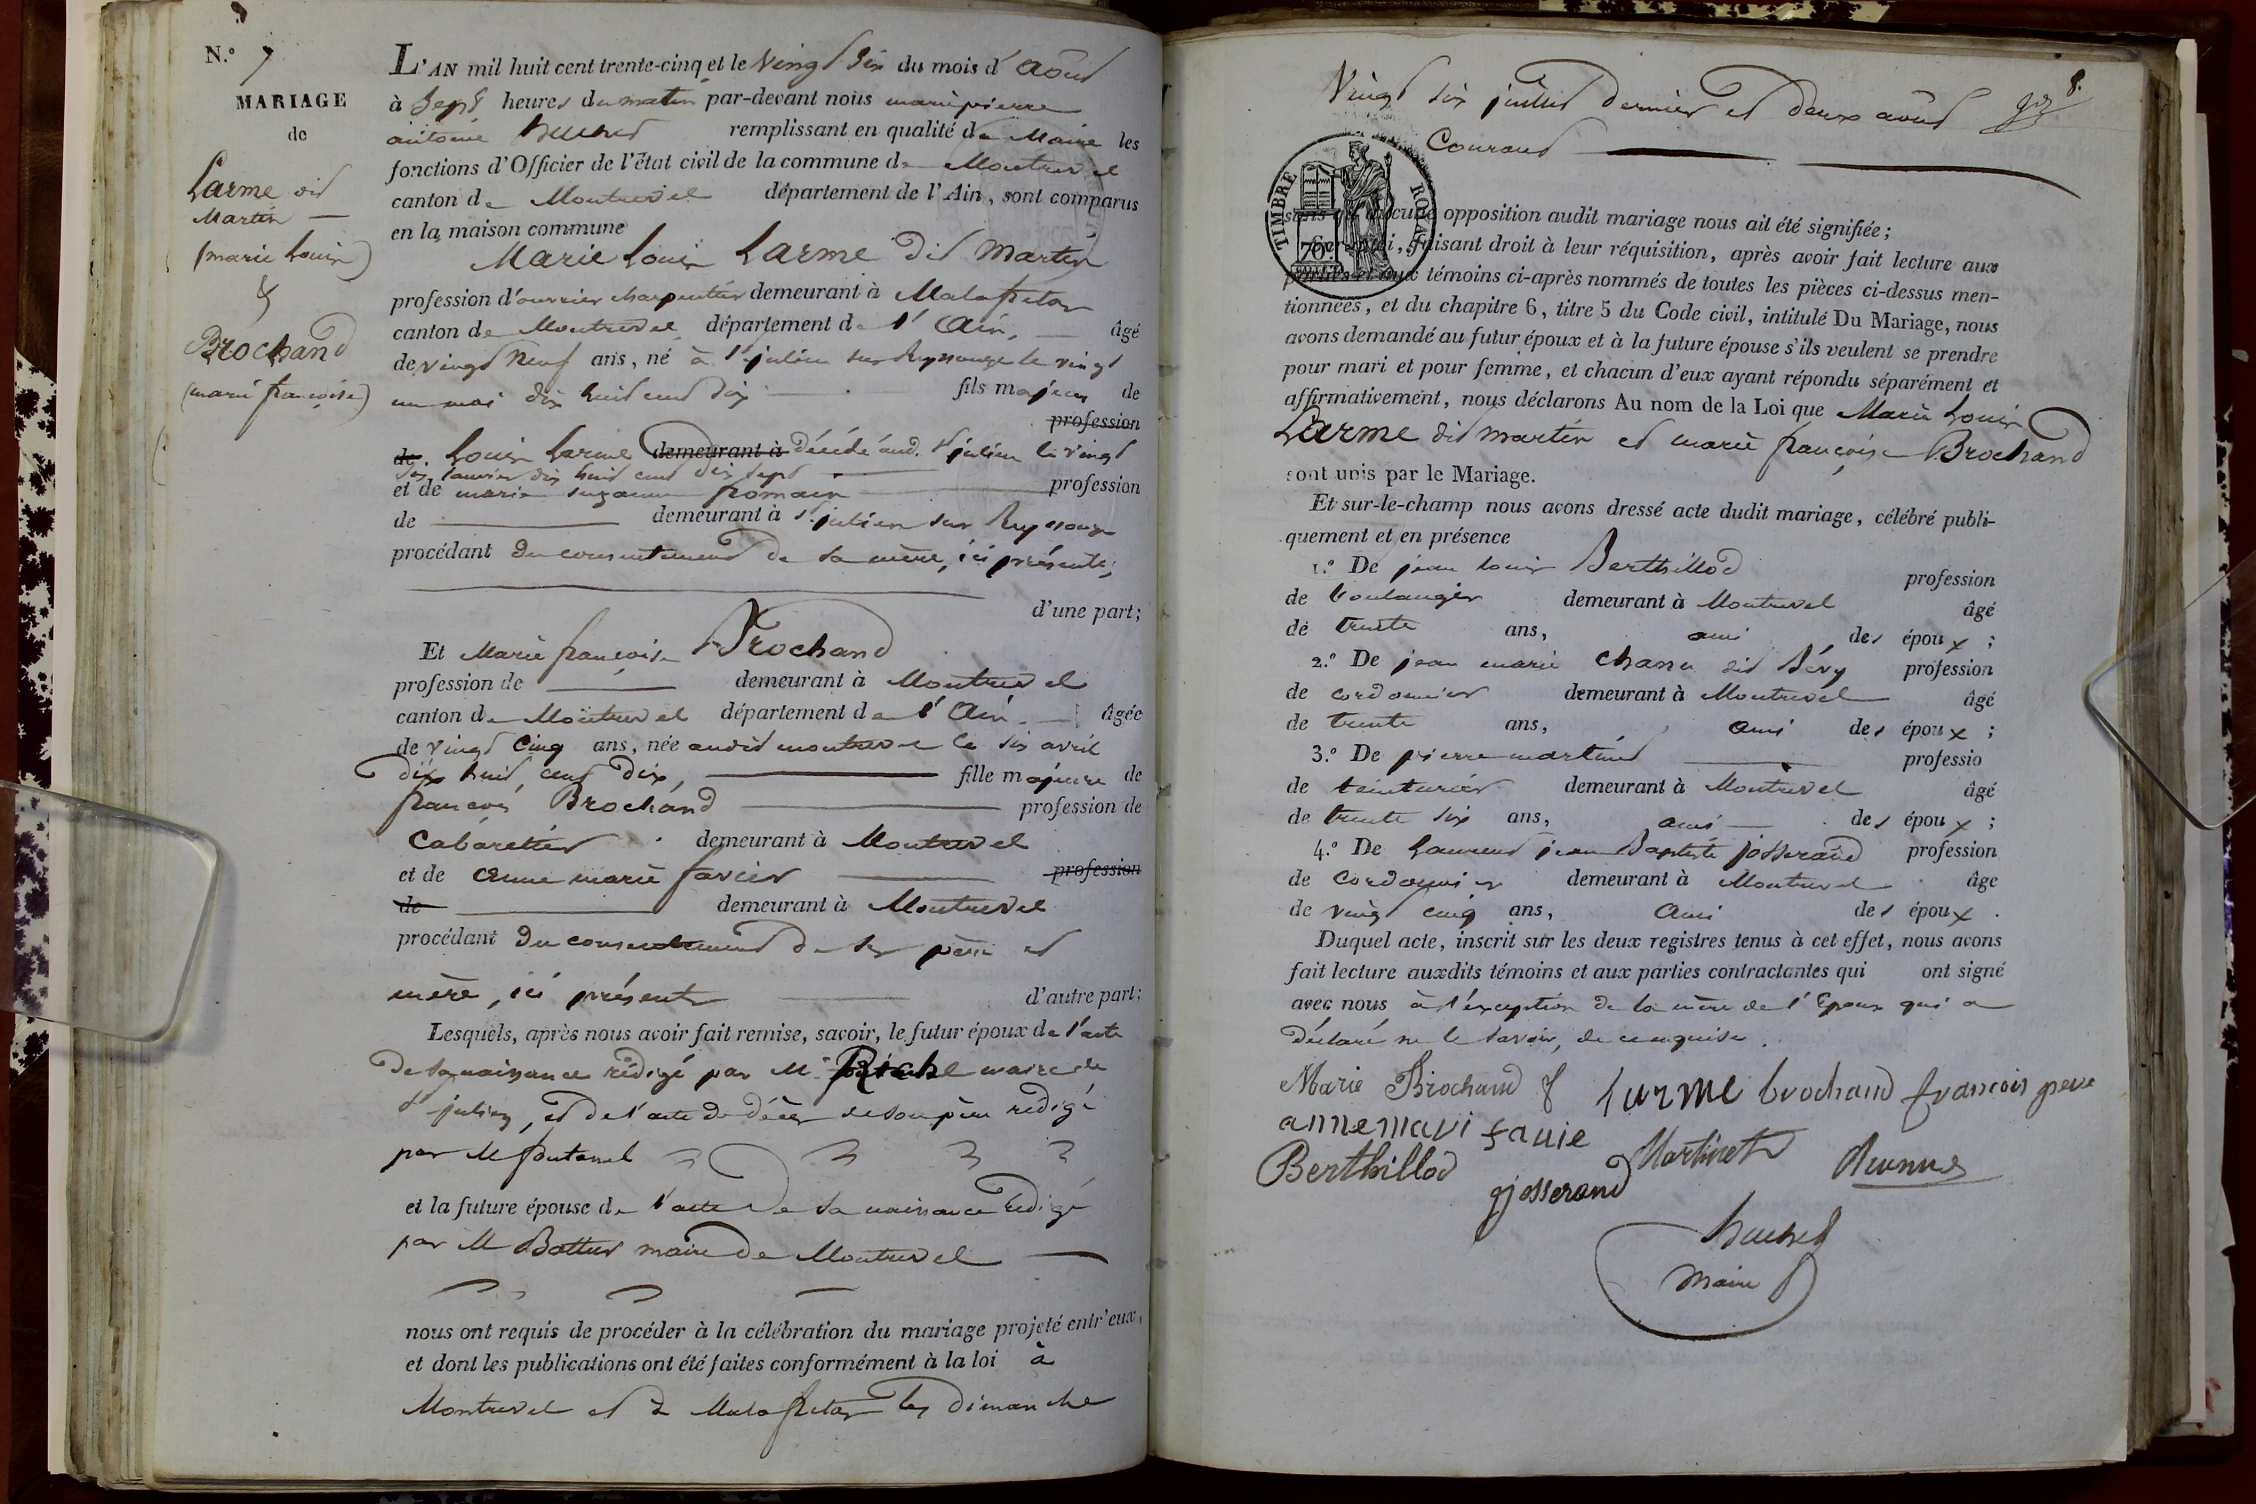 N.º 7
MARIAGE
de
Larme dit
Martin
(marie Louis)
&
Brochand
(marie françoise)
L'AN mil huit cent trente-cinq et le vingt six du mois d'août
à sept heures du matin par-devant nous marie pierre
antoine remplissant en qualité de Maire les
fonctions d'Officier de l'état civil de la commune de Montrevel
canton de Montrevel département de l'Ain, sont comparus
en la maison commune
Marie Louis Larme dit Martin
profession d'ouvrier charpentier demeurant à Malafretaz
canton de Montrevel département de l'Ain, âgé
de vingt neuf ans, né à St julien sur Reyssouze le vingt
un mai dix huit cent dix fils majeur de
profession
de Louis Larme demeurant à Décédé aud. St julien le vingt
six janvier dix huit cent dix sept
et de marie suzanne profession
de demeurant à St julien sur Reyssouze
procédant du consentement de sa mère, ici présente;
d'une part;
Et Marie françoise Brochand
profession de demeurant à Montrevel
canton de Montrevel département de l'Ain. âgée
de vingt cinq ans, née audit montrevel le six avril
dix huit cent dix, fille majeure de
françois Brochand profession de
Cabaretier demeurant à Montrevel
et de anne marie favier profession
de demeurant à Montrevel
procédant du consentement de ses père et
mère, ici présents d'autre part;
Lesquels, après nous avoir fait remise, savoir, le futur époux de l'acte
de sa naissance rédigé par Mr maire de
St julien, et de l'acte de décès de son père redigé
par M fontanel
et la future épouse de l'acte de sa naissance redigé
par M maire de Montrevel
nous ont requis de procéder à la célébration du mariage projeté entr'eux,
et dont les publications ont été faites conformément à la loi à
Montrevel et à Malafretaz les dimanche
8.
Vingt six juillet dernier et deux août
Courant
TIMBRE ROYAL
70
sans qu'aucune opposition audit mariage nous ait été signifiée;
Sur quoi, faisant droit à leur réquisition, après avoir fait lecture aux
parties et aux témoins ci-après nommés de toutes les pièces ci-dessus men-
tionnées, et du chapitre 6, titre 5 du Code civil, intitulé Du Mariage, nous
avons demandé au futur époux et à la future épouse s'ils veulent se prendre
pour mari et pour femme, et chacun d'eux ayant répondu séparément et
affirmativement, nous déclarons Au nom de la Loi que Marie Louis
Larme dit martin et marie françoise Brochand
sont unis par le Mariage.
Et sur-le-champ nous avons dressé acte dudit mariage, célébré publi-
quement et en présence
1.º De jean louis Berthillod profession
de boulanger demeurant à Montrevel âgé
de trente ans, ami des époux;
2.º De jean marie chanu dit Bévy profession
de cordonnier demeurant à Montrevel âgé
de trente ans, ami des époux;
3.º De pierre martinet professio
de teinturier demeurant à Montrevel âgé
de trente six ans, ami des époux;
4.º De Laurent jean Baptiste josserand profession
de Cordonnier demeurant à Montrevel âge
de vingt cinq ans, Ami des époux.
Duquel acte, inscrit sur les deux registres tenus à cet effet, nous avons
fait lecture auxdits témoins et aux parties contractantes qui ont signé
avec nous à l'exception de la mère de l'Epoux qui a
déclaré ne le savoir, de ce enquise.
Marie Brochand Larme brochand francois pere
annemari favie
Berthillod Martinet
josserand
Maire